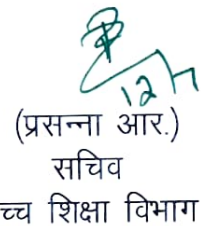 12/7
(प्रसन्ना आर.)
सचिव
च्च शिक्षा विभाग